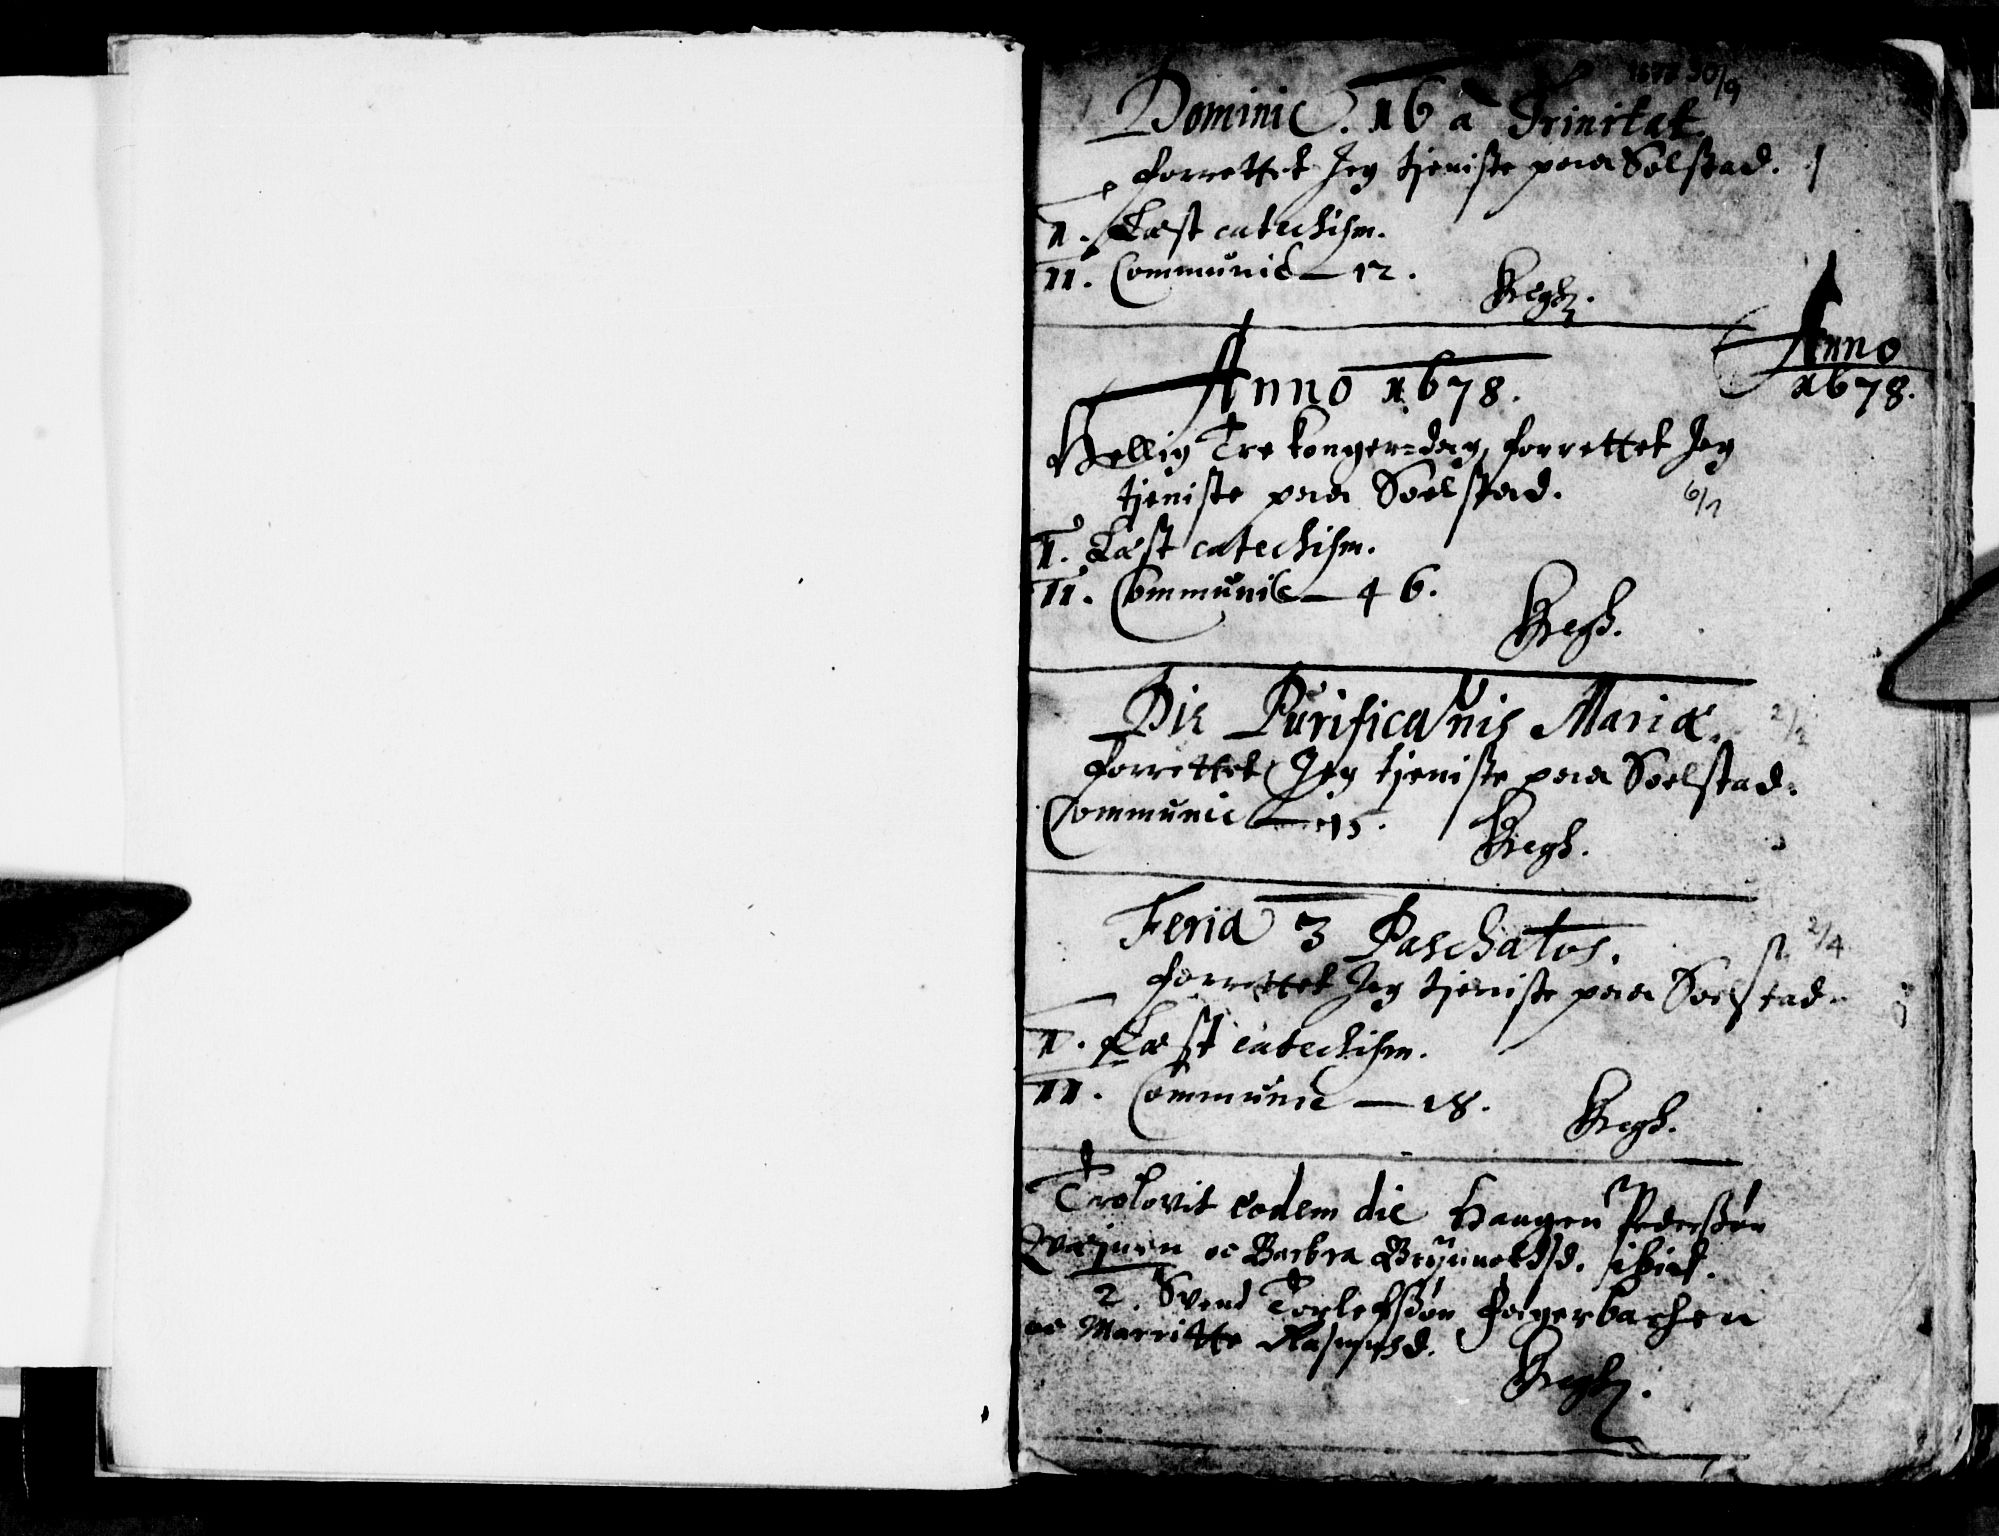 1677 30/9
Dominic. 16 a Trinitat.
forrettet Jeg tjeniste paa Solstad.
I. Læst catechism.
II. Communic — 12.
Anno
1678.
Anno 1678.
Hellig Tre konger=dag, forrettet Jeg
tjeniste paa Soelstad.
6/1
I. Læst catechism.
II. Communic — 46.
Die Purificaōnis Mariæ.
2/2
forrettet Jeg tjeniste paa Soelstad.
Communic — 15.
Feria 3 Paschatos.
2/4
forrettet Jeg tjeniste paa Soelstad.
I. Læst catechism.
II. Communic — 18.
Trolovit eodem die Haagen Pederssøn
oc Barbra Brÿnnoldsd. ibid.
2. Svend Torlefssøn Fagerbachen
oc Marritte